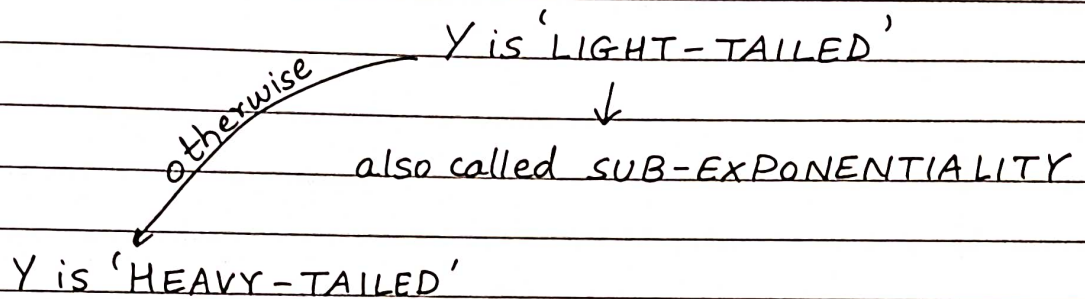 Y is 'LIGHT-TAILED'
otherwise
↓
also called SUB-EXPONENTIALITY
Y is 'HEAVY-TAILED'